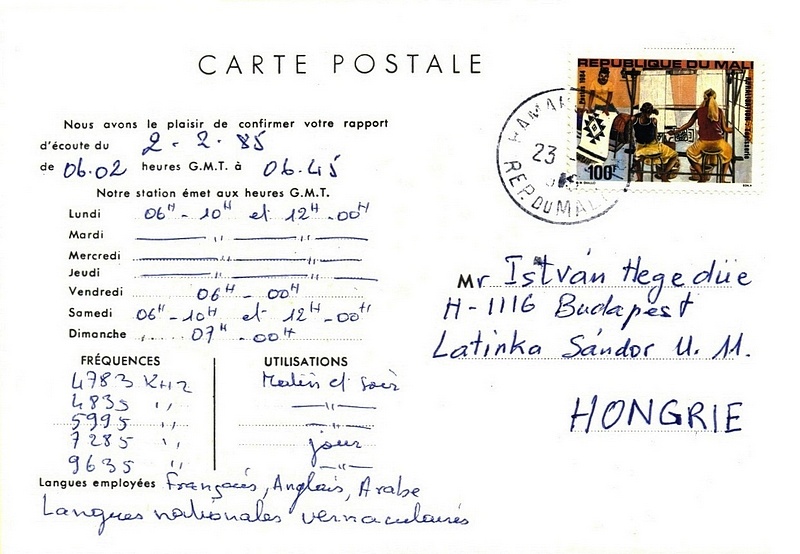 CARTE POSTALE
REPUBLIQUE DU MALI
100F
BAMAKO
23
REP. DU MALI
Nous avons le plaisir de confirmer votre rapport
d'écoute du 2 - 2 - 85
de 06.02 heures G.M.T. à 06.45
Notre station émet aux heures G.M.T.
Lundi 06H - 10H et 12H - 00H
Mardi — " — " —
Mercredi — " — " —
Jeudi — " — " —
Vendredi 06H - 00H
Samedi 06H - 10H et 12H - 00H
Dimanche 07H - 00H
FRÉQUENCES UTILISATIONS
4783 KHz Matin et soir
4835 " — " —
5995 " — " —
7285 " jour
9635 " — " —
Langues employées Français, Anglais, Arabe
Langues nationales vernaculaires
Mr István Hegedüe
H-1116 Budapest
Latinka Sándor U. 11.
HONGRIE